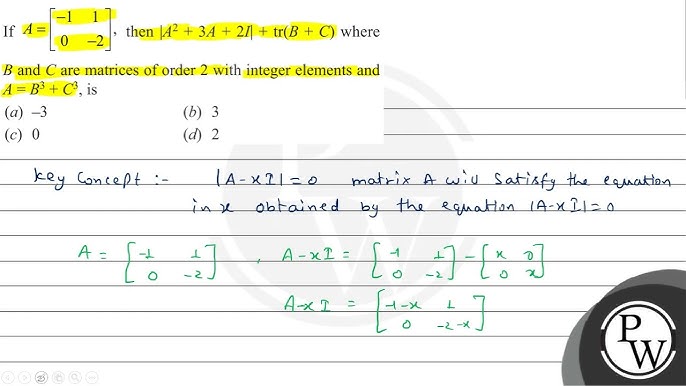 If A = [−1 1 0 −2], then |A² + 3A + 2I| + tr(B + C) where
B and C are matrices of order 2 with integer elements and
A = B³ + C³, is
(a) –3 (b) 3
(c) 0 (d) 2
Key Concept :- |A-xI|=0 matrix A will satisfy the equation
in x obtained by the equation |A-xI|=0
A = [-1 1 0 -2] , A-xI = [-1 1 0 -2] - [x 0 0 x]
A-xI = [-1-x 1 0 -2-x]
P
W